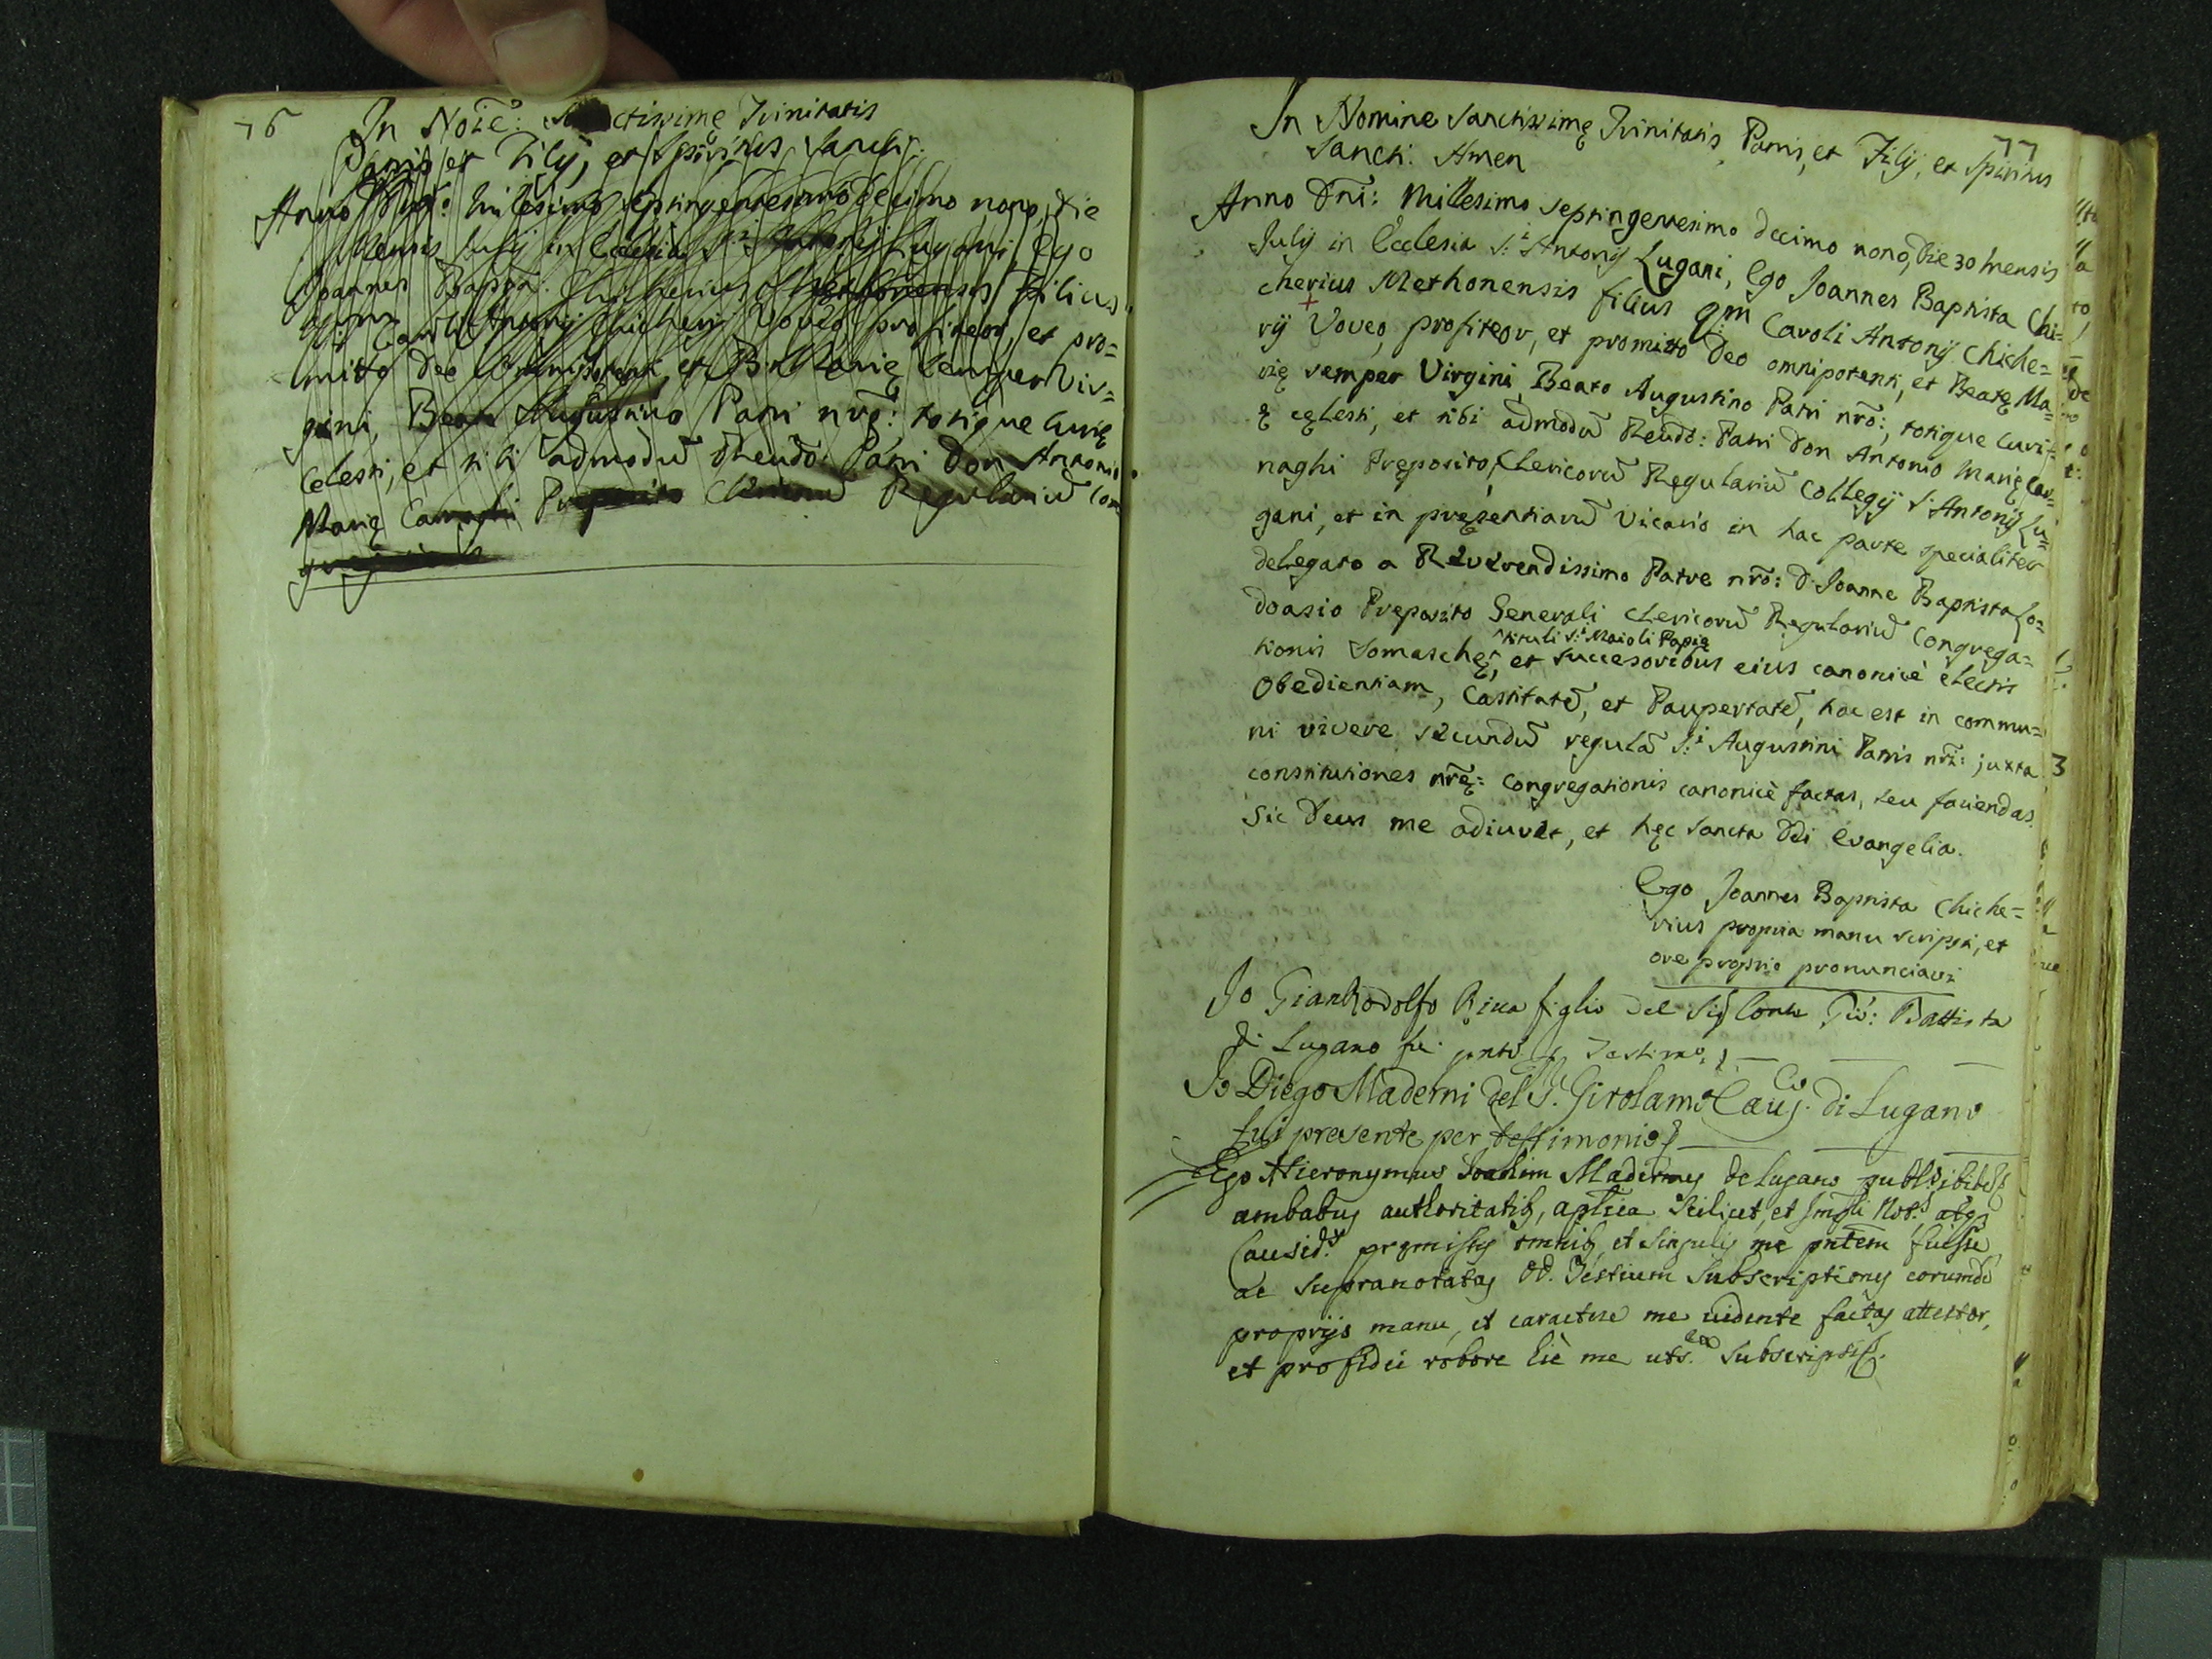 76
In Noie: ctissimę Trinitatis
Patris et Filij, et Spiritus Sancti.
Anno Dni: millesimo septingentesimo decimo nono, die
Mensis Julij in Ecclesia S.i Antonij Lugani, Ego
Joannes Bappta: Chicherius Methonensis Filius
qm Caroli Antonij Chicherij Voveo, profiteor, et pro=
mitto Deo Omnipotenti, et B. Marię semper Vir=
gini, Beato Augustino Patri nrō: totique Curię
Celesti, et tibi admodū Rendō Patri Don Antonio
Marię Carnaghi Preposito Clericorū Regulariū
77
In Nomine Sanctissimę Trinitatis, Patris, et Filij, et Spiritus
Sancti. Amen
Anno Dnī: Millesimo septingentesimo decimo nono, die 30 mensis
Julij in Ecclesia S.i Antonij Lugani, Ego Joannes Baptista Chi=
cherius Methonensis filius qm Caroli Antonij Chiche=
rij Voveo, profiteor, et promitto Deo omnipotenti, et Beatę Ma=
rię semper Virgini, Beato Augustino Patri nrō:, totique Curi=
ę cęlesti, et tibi admodū Rendō: Patri Don Antonio Marię Car=
naghi Pręposito, Clericorū Regulariū Collegij S. Antonij Lu=
gani, et in pręsentiarū Vicario in hac parte specialiter
delegato a Reverendissimo Patre nrō: D. Joanne Baptista Lo=
doasio Preposito Generali Clericorū Regulariū Congrega=
tituli S.i Maioli Papię
tionis Somaschę, et successoribus eius canonicè electis
Obedientiam, Castitatē, et Paupertatē, hoc est in commu=
ni vivere secundū regulā S.i Augustini Patris nrī: juxta
constitutiones nrę: Congregationis canonicè factas, seu faciendas.
Sic Deus me adiuvet, et hęc Sancta Dei Evangelia.
Ego Joannes Baptista Chiche=
rius propria manu scripsi, et
ore proprio pronunciavi
Jo GianRodolfo Riva figlio del Sig Conte Gio: Battista
di Lugano fui pntē p Testimo.
Jo Diego Maderni del S.r Girolamo Caus.co di Lugano
fui presente per testimonio
Ego Hieronymus Maderny de Lugano
ambabus authoritatib, aplica scilicet, et Not.s atq
Causid.s pręmissis omnib, et singulis me pntem fuisse,
ac supranotatas DD. Testium subscriptiones eorumdē
proprijs manu, et caractere me vidente factas attestor,
et pro fidei robore hic me subscripsi